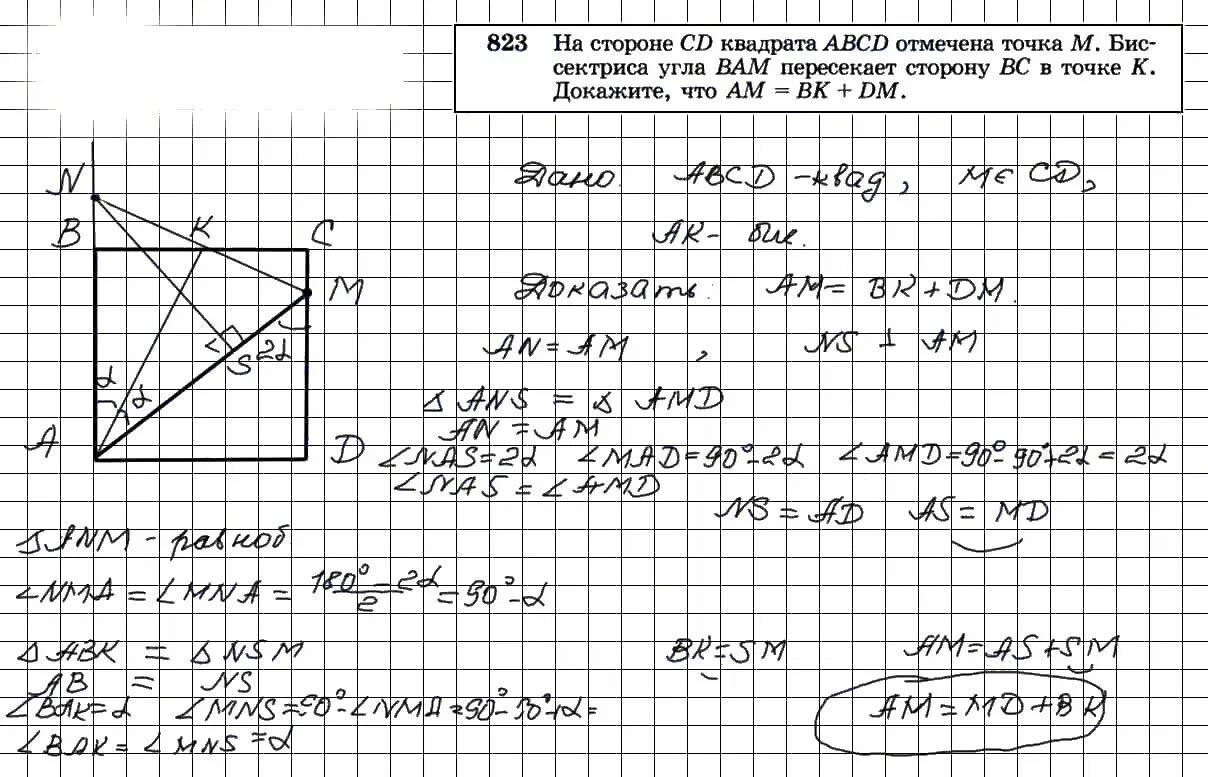 823 На стороне CD квадрата ABCD отмечена точка M. Бис-
сектриса угла BAM пересекает сторону BC в точке K.
Докажите, что AM = BK + DM.
N
B K C
M
S 2α
α α
A D
Дано. ABCD -квад, M∈ CD,
AK- бис.
Доказать: AM= BK+DM.
AN=AM , NS ⊥ AM
△ ANS = △ AMD
AN = AM
∠NAS=2α ∠MAD=90°-2α ∠AMD=90°-90°+2α=2α
∠NAS=∠AMD
NS=AD AS=MD
△ANM - равноб
∠NMA=∠MNA= 180°-2α / 2 =90°-α
△ABK = △NSM BK=SM AM=AS+SM
AB = NS
∠BAK=α ∠MNS=90°-∠NMA=90°-90°+α= AM=MD+BK
∠BAK=∠MNS=α